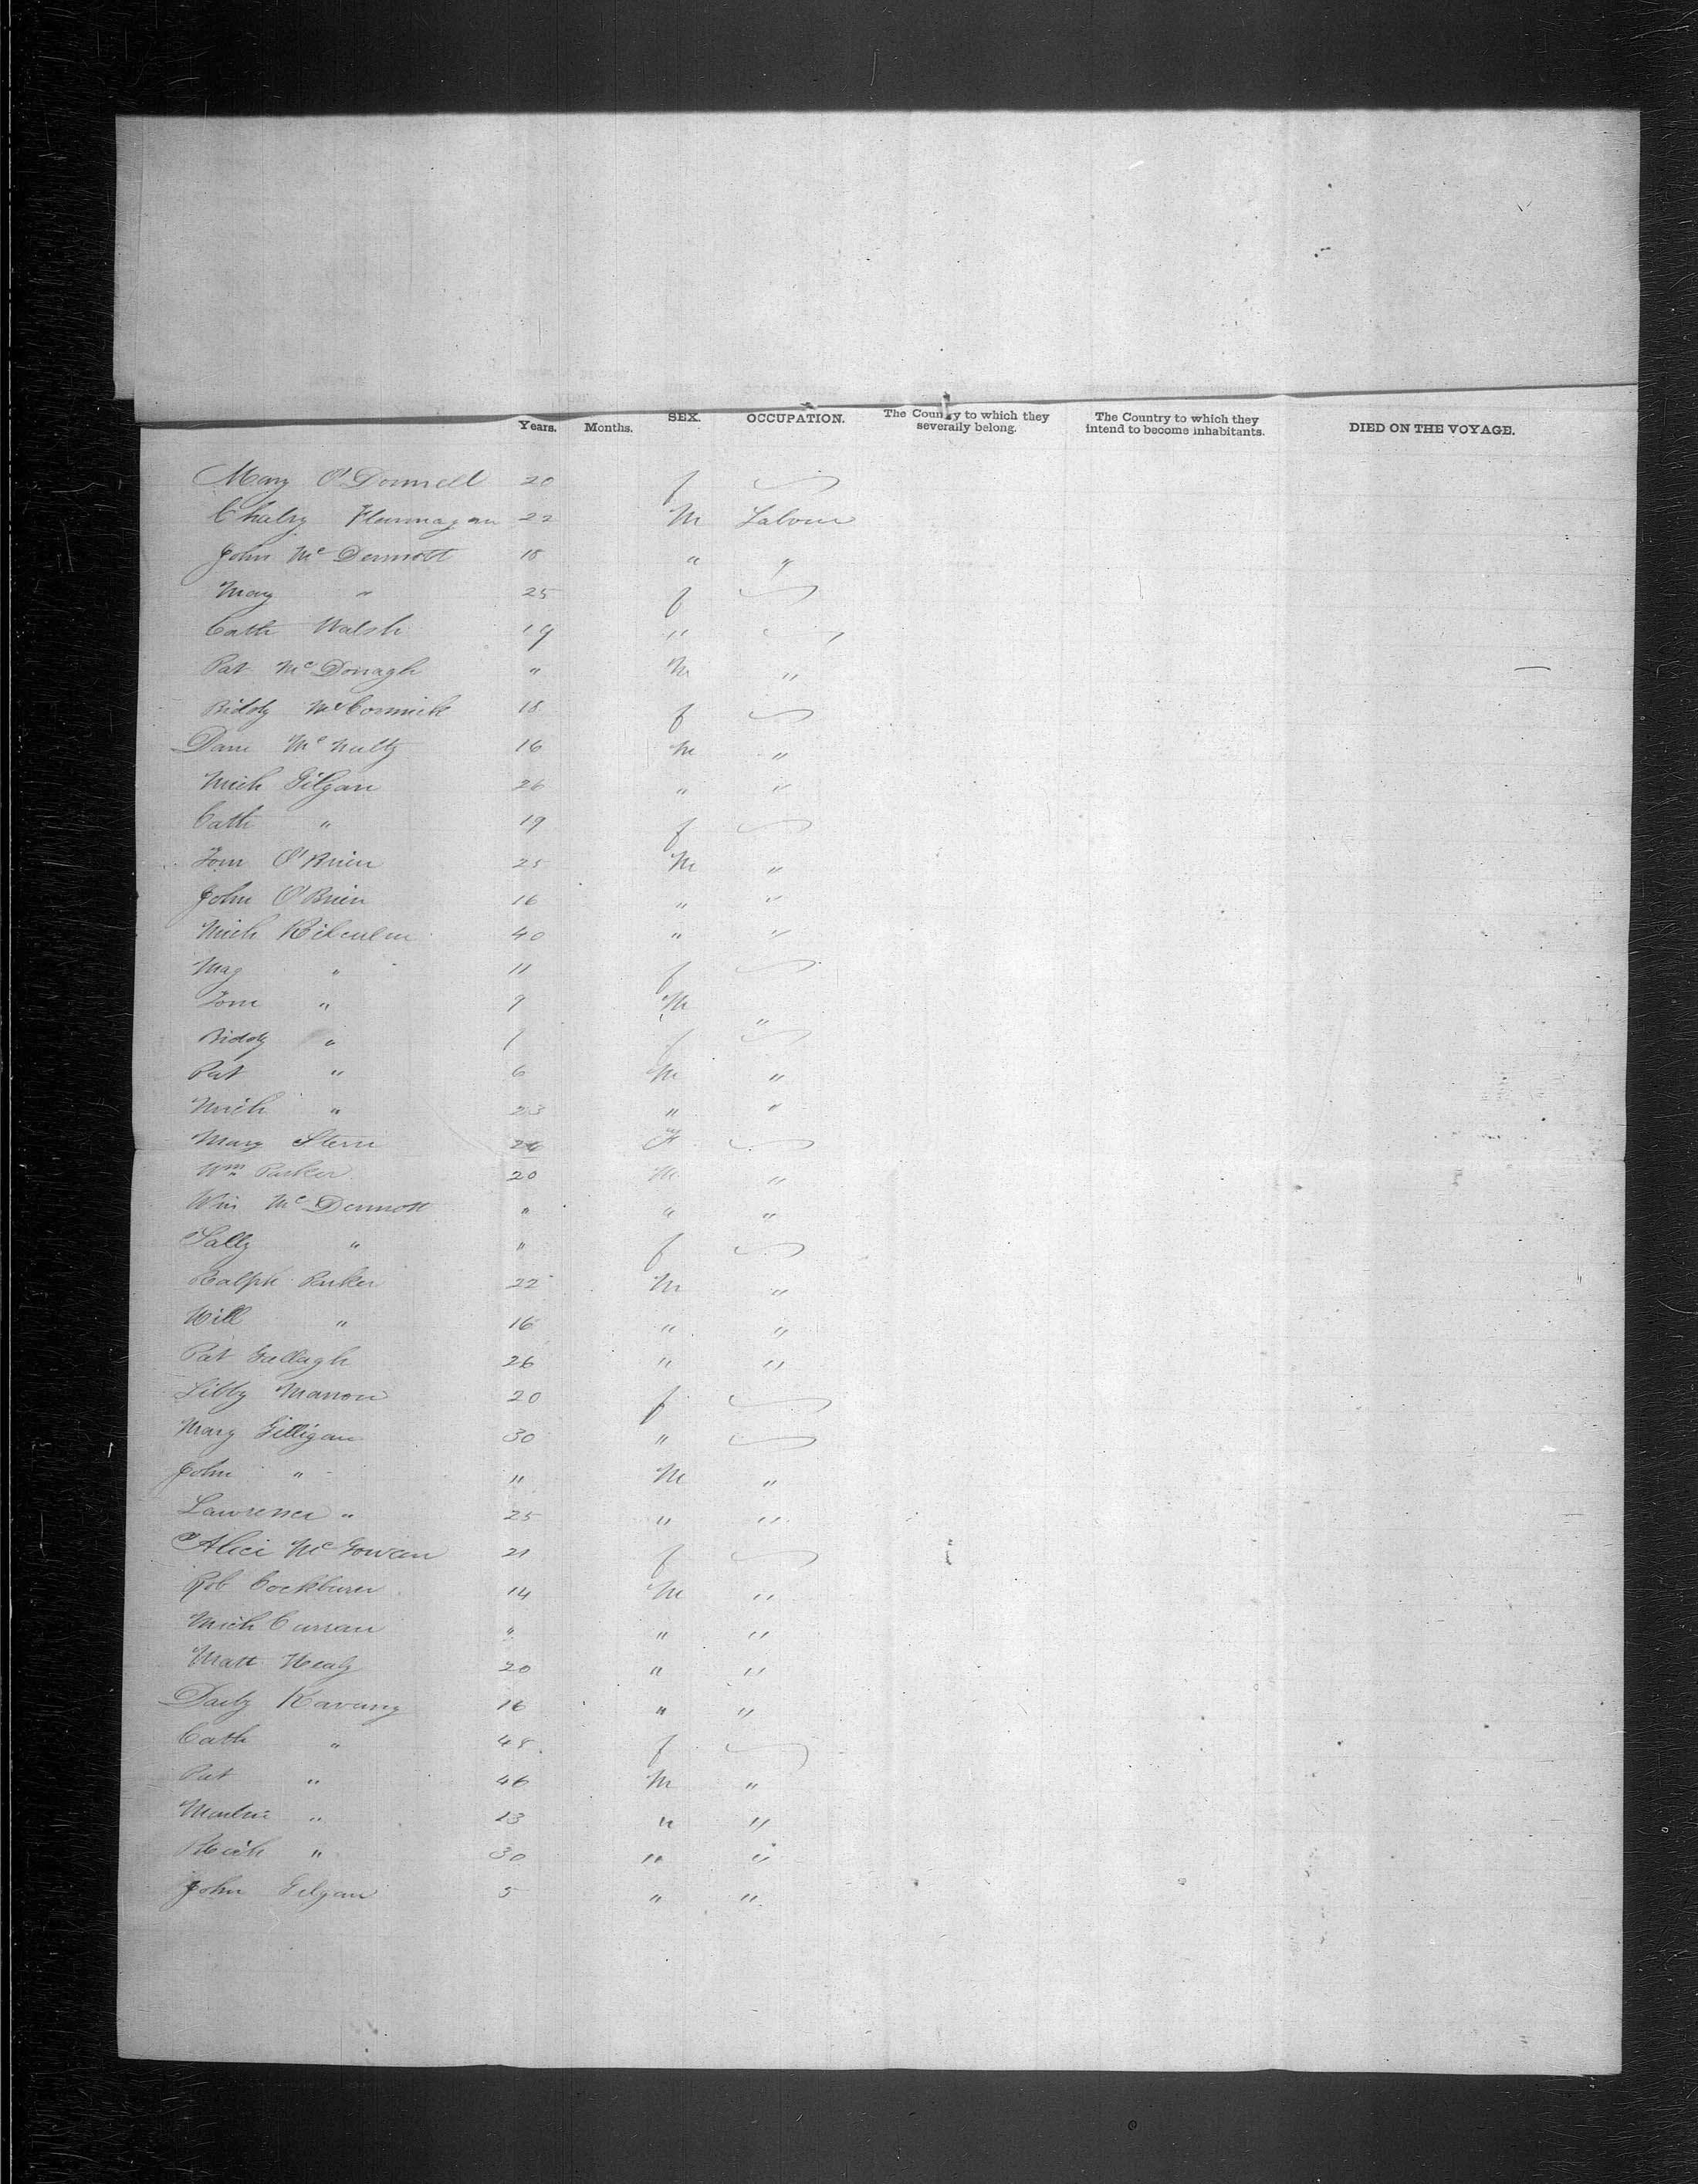 Years. Months. SEX. OCCUPATION. The Country to which they severally belong. The Country to which they intend to become inhabitants. DIED ON THE VOYAGE.
Mary O'Donnell 20 f
Flannagan 22 M Labour
John McDermott 18 " "
Mary " 25 f
Cath Walsh 19 "
Pat McDonagh " M "
Biddy McCormick 18 f
Dan McNulty 16 M "
Mich Gilgan 26 " "
Cath " 19 f
Tom O'Brien 25 M "
John O'Brien 16 " "
Mich 40 " "
Mag " 11 f
Tom " 9 M "
Biddy " f
Pat " 6 M "
Mich " 23 " "
Mary F
Wm Parker 20 M "
Wm McDermott " " "
Sally " " f
Ralph Parker 22 M "
Will " 16 " "
Pat Gallagh 26 " "
Libby 20 f
Mary Gilligan 30 "
John " 11 M "
Lawrence " 25 " "
Alice McGowan 21 f
Rob Cockburn 14 M "
Mich Curran " " "
Matt Healy 20 " "
16 " "
Cath " 48 f
Pat " 46 M "
Martin " 13 " "
Mich " 30 " "
John Gilgan 5 " "